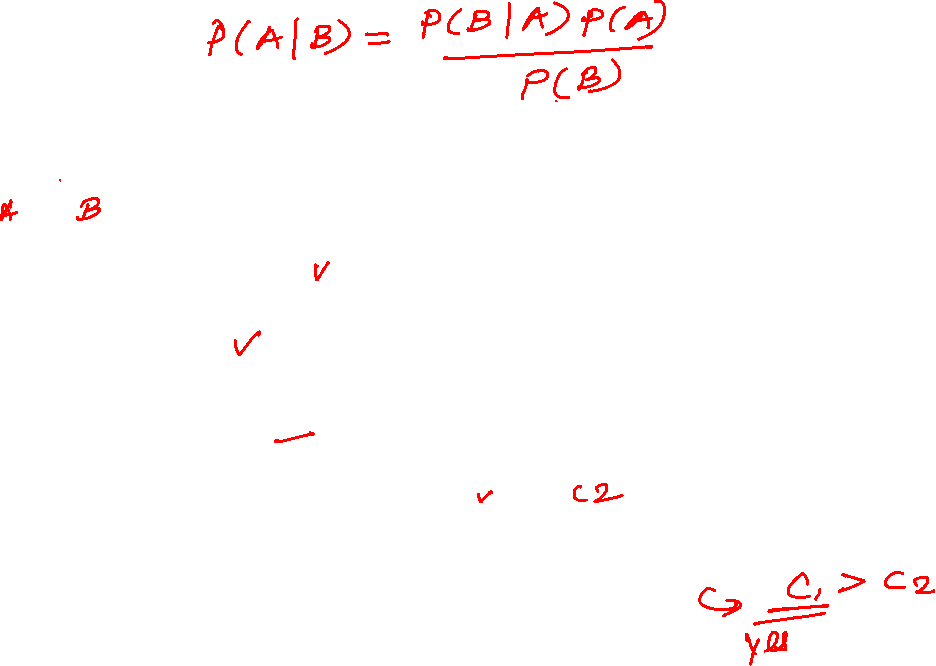 P(A|B) = P(B|A) P(A)
P(B)
A B
✓
✓
—
✓ C2
C → C1 > C2
yes